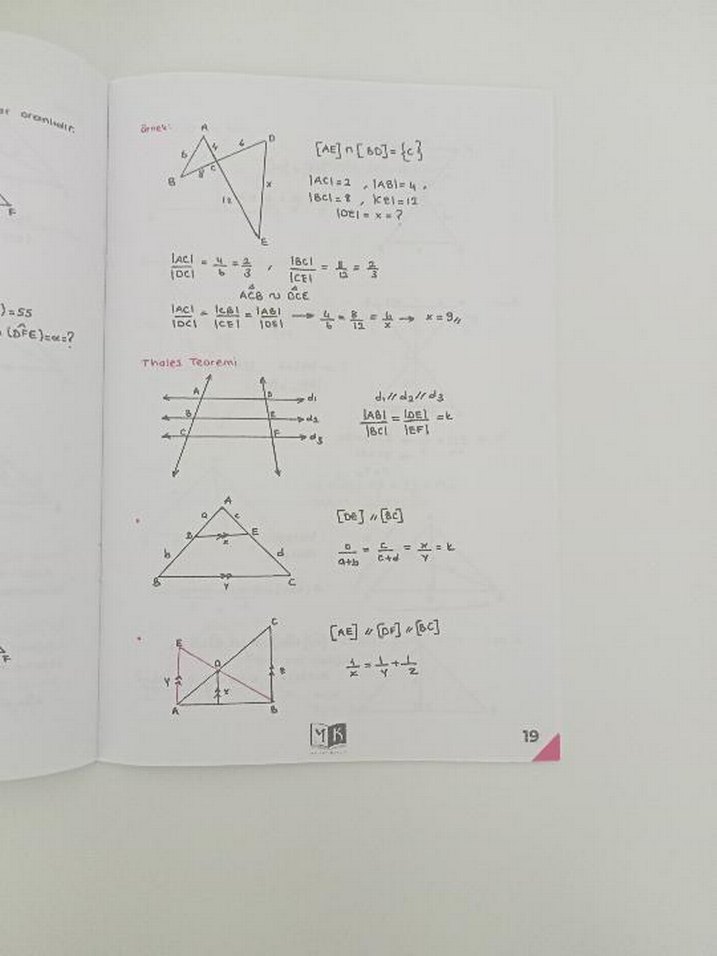 oranlıdır.
F
)=55
(DFE)=α=?
F
Örnek:
A
6
4
6
D
B
8
C
x
12
E
[AE]∩[BD]={C}
|AC|=2 , |AB|=4 ,
|BC|=8 , |CE|=12
|DE|=x=?
|AC|/|DC| = 4/6 = 2/3 , |BC|/|CE| = 8/12 = 2/3
ACB ~ DCE
|AC|/|DC| = |CB|/|CE| = |AB|/|DE| → 4/6 = 8/12 = 6/x → x=9//
Thales Teoremi
A D d1
B E d2
C F d3
d1//d2//d3
|AB|/|BC| = |DE|/|EF| = k
A
a c
D x E
b d
B y C
[DE] // [BC]
a/a+b = c/c+d = x/y = k
C
E
D
y x z
A B
[AE] // [DF] // [BC]
1/x = 1/y + 1/z
MK
19